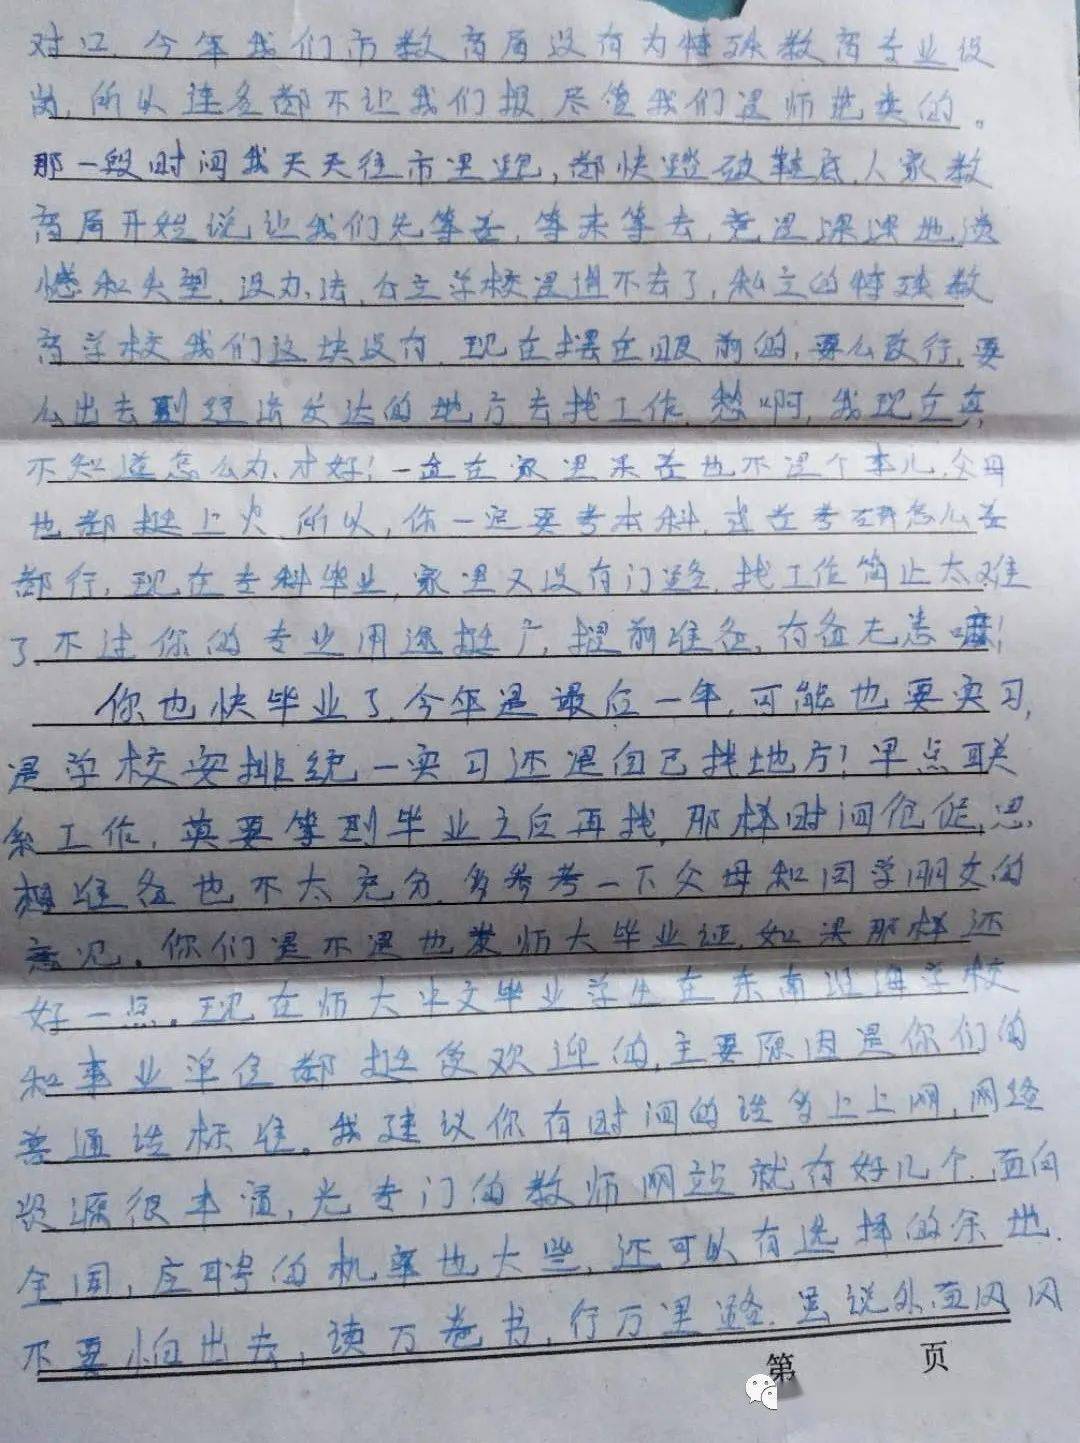 对口.今年我们市教育局没有为特殊教育专业设
岗,所以连名都不让我们报.尽管我们是师范类的。
那一段时间我天天往市里跑,都快跑破鞋底.人家教
育局开始说让我们先等着,等来等去,竟是深深地遗
憾和失望.没办法,公立学校是进不去了,私立的特殊教
育学校我们这块没有.现在摆在眼前的,要么改行.要
么出去到经济发达的地方去找工作.愁啊,我现在真
不知道怎么办才好!一直在家里呆着也不是个事儿.父母
也都挺上火.所以,你一定要考本科,或者考研怎么着
都行,现在专科毕业,家里又没有门路.找工作简直太难
了.不过你的专业用途挺广,提前准备,有备无患嘛!
你也快毕业了.今年是最后一年,可能也要实习,
是学校安排统一实习还是自己找地方!早点联
系工作,莫要等到毕业之后再找,那样时间仓促,思
想准备也不太充分.多参考一下父母和同学朋友的
意见。你们是不是也发师大毕业证,如果那样还
好一点。现在师大中文毕业学生在东南沿海学校
和事业单位都挺受欢迎的,主要原因是你们的
普通话标准。我建议你有时间的话多上上网,网络
资源很丰富,光专门的教师网站就有好几个.面向
全国,应聘的机率也大些,还可以有选择的余地.
不要怕出去,读万卷书,行万里路.虽说外面风风
第 页